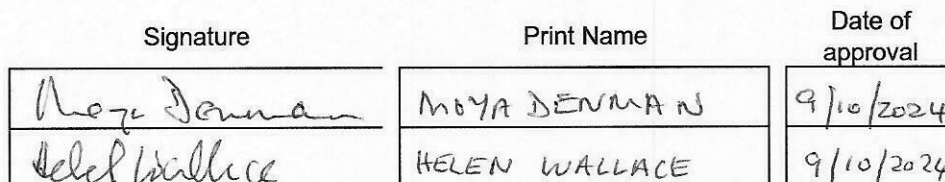 Signature Print Name Date of
approval
Moya Denman MOYA DENMAN 9/10/2024
Helen Wallace HELEN WALLACE 9/10/2024